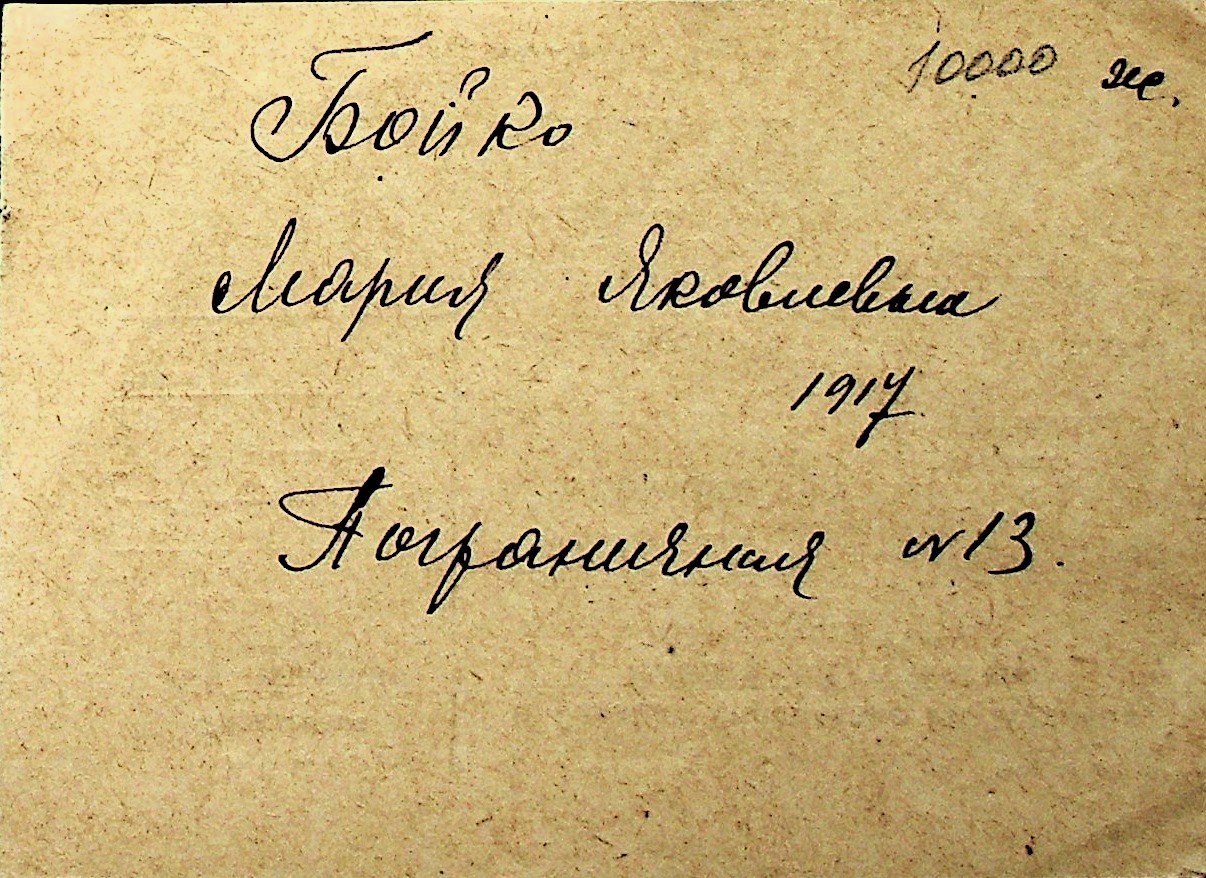 10000 ж.
Бойко
Мария Яковлевна
1917
Пограничная N13.